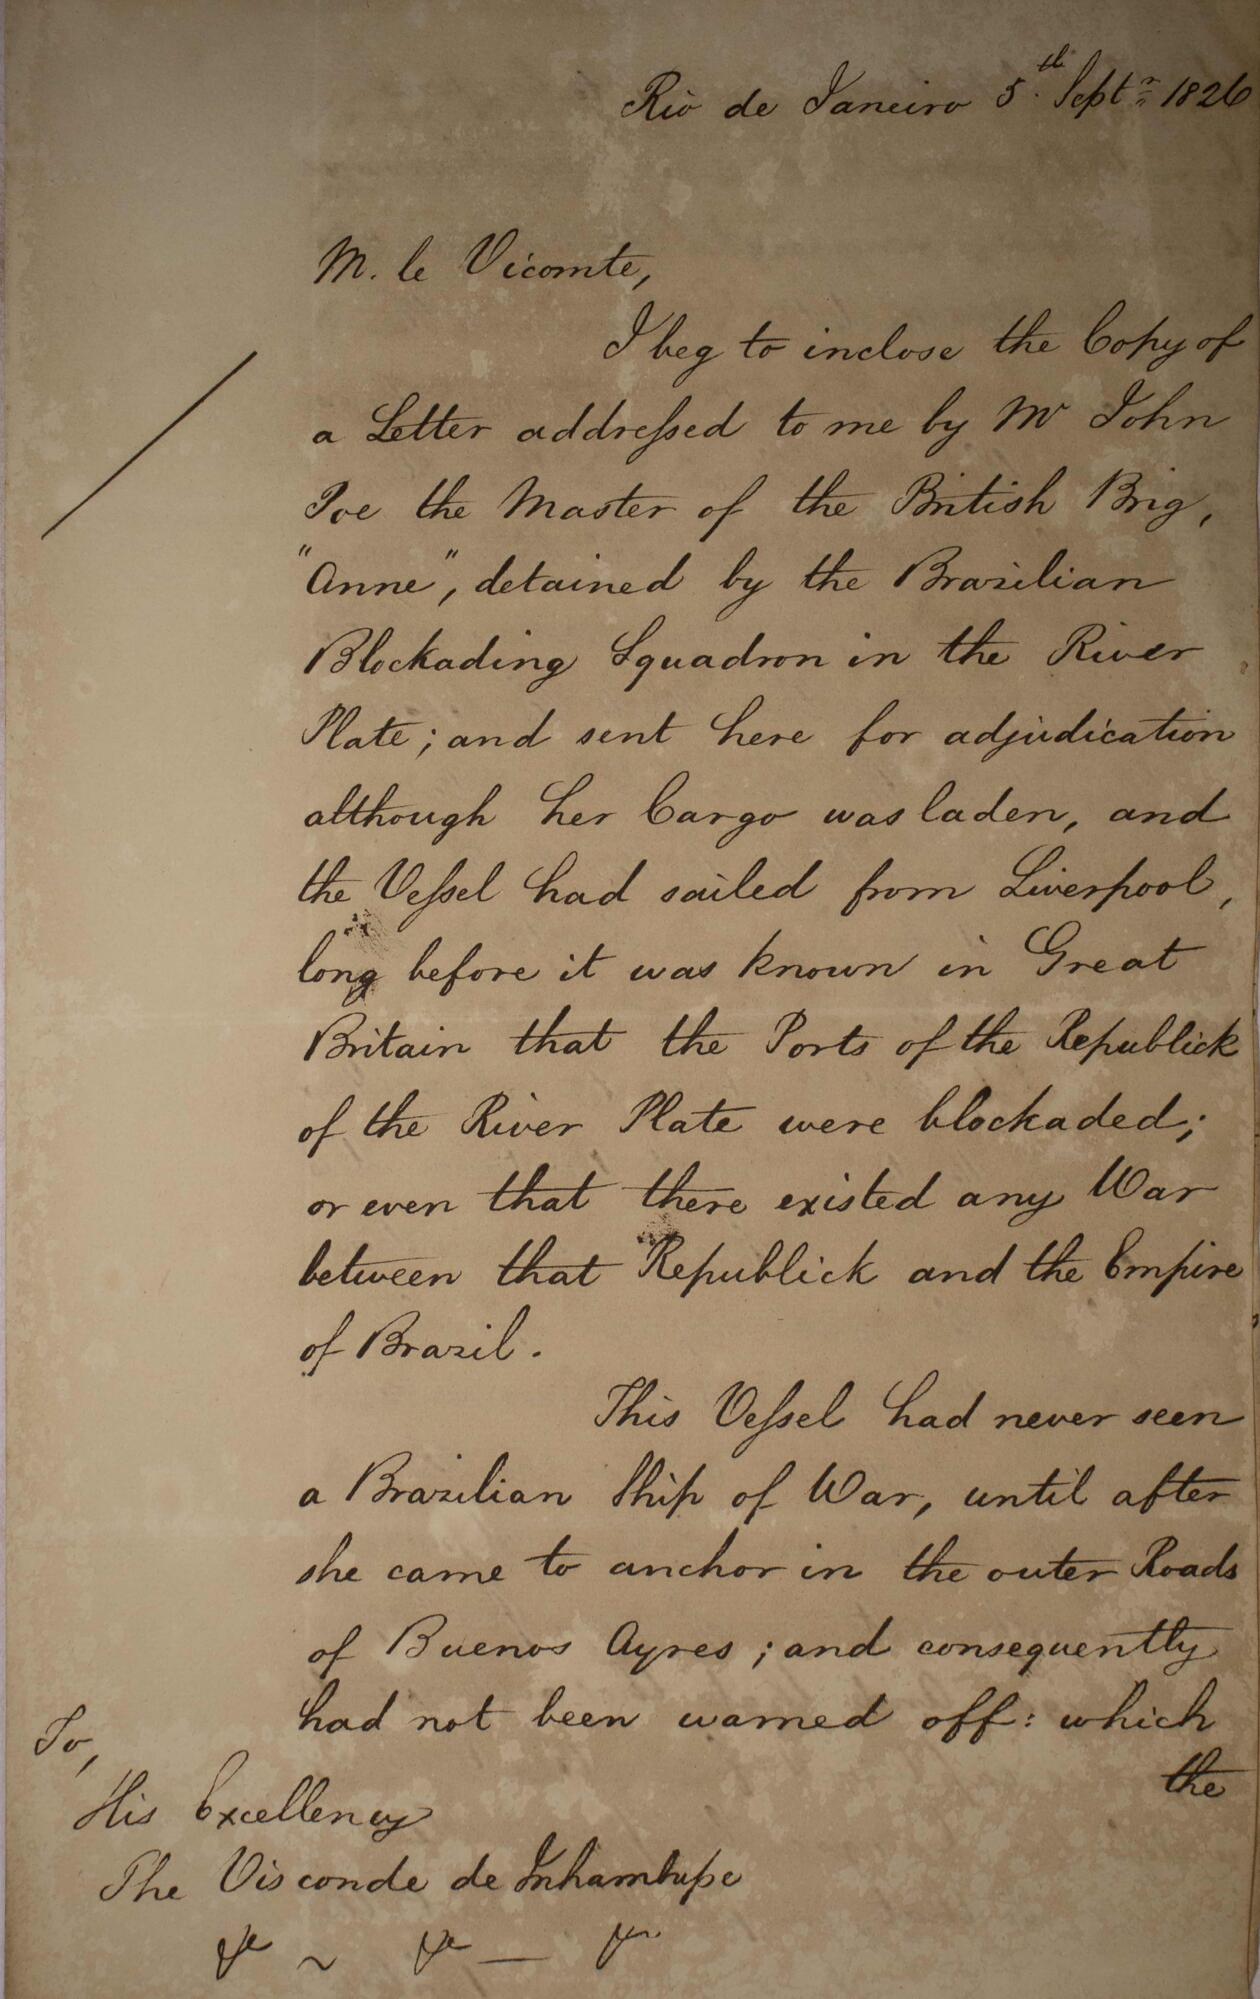 Rio de Janeiro 5th Septr 1826
M. le Vicomte,
I beg to inclose the Copy of
a Letter addressed to me by Mr John
Poe the Master of the British Brig,
"Anne", detained by the Brazilian
Blockading Squadron in the River
Plate; and sent here for adjudication
although her Cargo was laden, and
the Vessel had sailed from Liverpool,
long before it was known in Great
Britain that the Ports of the Republick
of the River Plate were blockaded;
or even that there existed any War
between that Republick and the Empire
of Brazil.
This Vessel had never seen
a Brazilian Ship of War, until after
she came to anchor in the outer Roads
of Buenos Ayres; and consequently
had not been warned off: which
the
To,
His Excellency
The Visconde de Inhambupe
&c ~ &c — &c